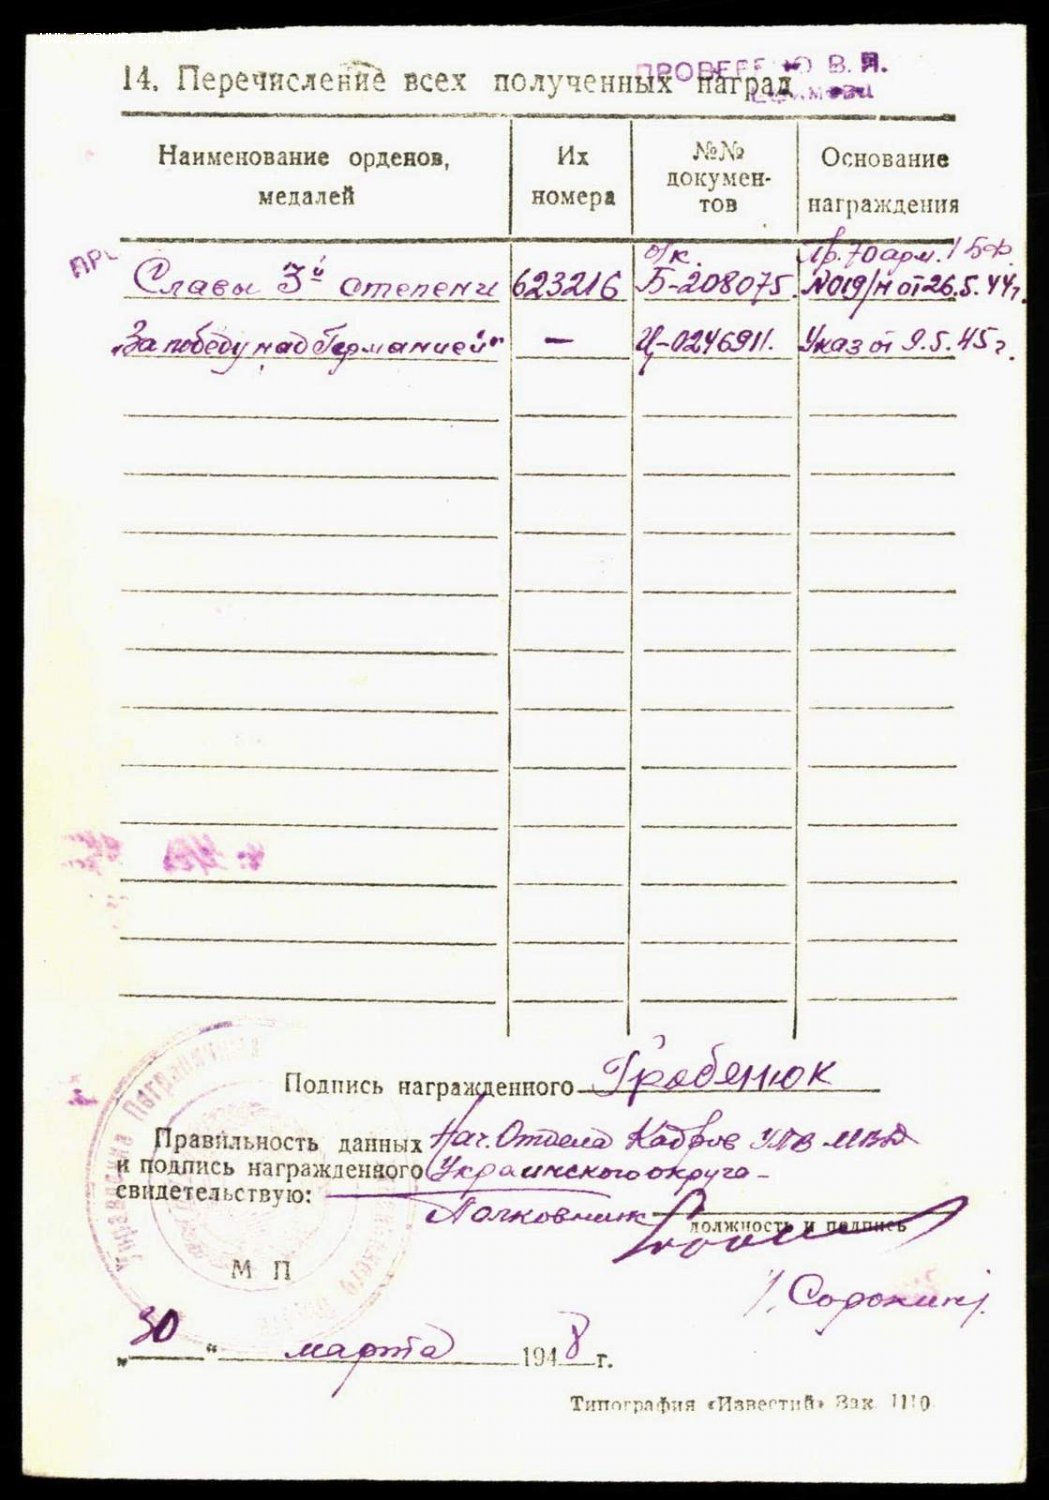 14. Перечисление всех полученных наград
Наименование орденов, медалей
Их номера
№№ докумен-
тов
Основание награждения
о/к. Пр. 70 арм. 1 БФ.
Славы 3й степени 623216 Б-208075. №019/н от 26.5.44г.
„За победу над Германией" — Ц-0246911. Указ от 9.5.45г.
Подпись награжденного Гребенюк
Правильность данных Нач. Отдела Кадров УПВ МВД
и подпись награжденного Украинского округа -
свидетельствую:
Полковник
должность и подпись
М П
/Сорокин/.
„30" марта 1948 г.
Типография «Известий» Зак. 1110